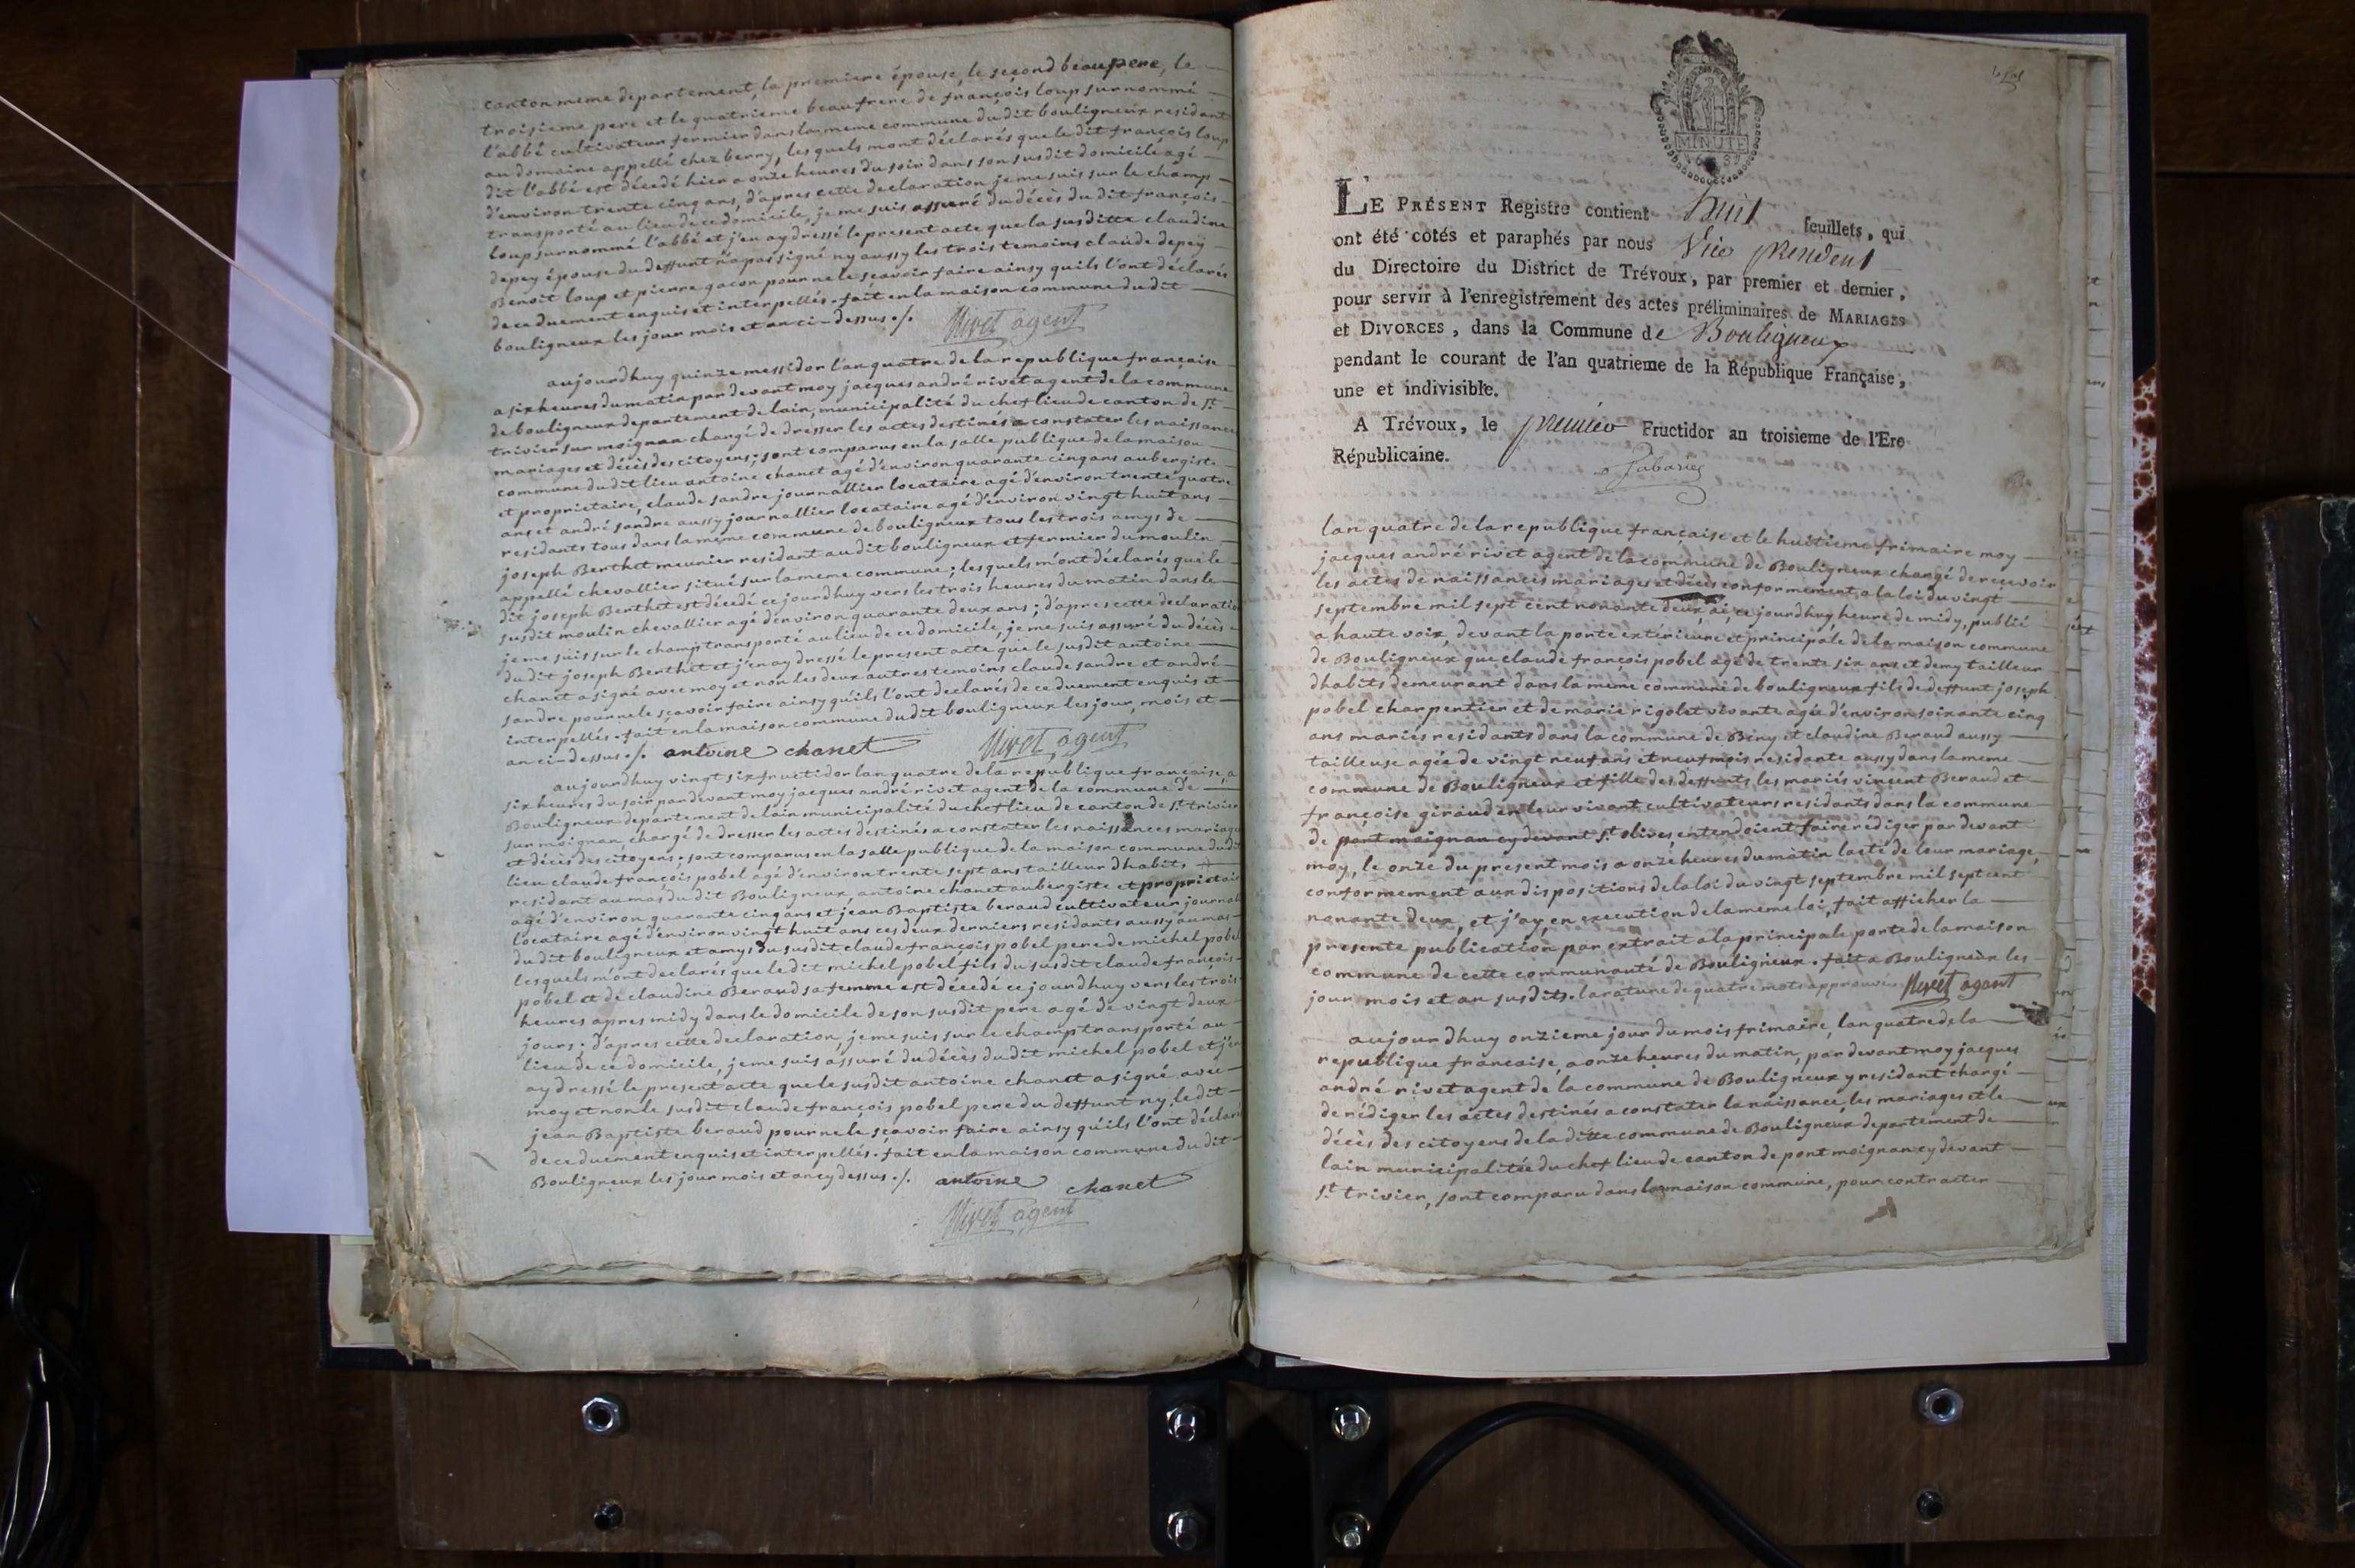 canton meme departement, la premiere épouse, le second beaupere, le
troisieme pere et le quatrieme beaufrere de françois loup surnommé
l'abbé cultivateur fermier dans la meme commune du dit bouligneux residant
au domaine appellé chez berry, les quels mont déclarés que le dit françois loup
dit l'abbé est décedé hier a onze heures du soir dans son susdit domicile agé
d'environ trente cinq ans, d'apres cette declaration je me suis sur le champ
transporté au lieu de ce domicile, je me suis assuré du décès du dit françois
loup surnommé l'abbé et j'en ay dressé le present acte que la susditte claudine
depey épouse du deffunt n'a pas signé ny aussy les trois temoins claude depey
Benoit loup et pierre gacon pour ne le sçavoir faire ainsy quils l'ont déclarés
de ce duement enquis et interpellés. fait en la maison commune du dit
bouligneux les jour mois et an ci-dessus ./. Rivet agent
aujourdhuy quinze messidor l'an quatre de la republique française
a six heures du matin par devant moy jacques andré rivet agent de la commune
de bouligneux departement de lain, municipalité du chef lieu de canton de st
trivier sur moignan chargé de dresser les actes destinés a constater les naissances
mariages et décès des citoyens; sont comparus en la salle publique de la maison
commune du dit lieu antoine chanet agé d'environ quarante cinq ans aubergiste
et proprietaire, claude sandre journallier locataire agé d'environ trente quatre
ans et andré sandre aussy journallier locataire agé d'environ vingt huit ans
residants tous dans la même commune de bouligneux tous les trois amys de
joseph Berthet meunier residant au dit bouligneux et fermier du moulin
appellé chevallier situé sur la meme commune; les quels m'ont déclarés que le
dit joseph Berthet est décedé ce jourdhuy vers les trois heures du matin dans le
susdit moulin chevallier agé d'environ quarante deux ans; d'apres cette declaration
je me suis sur le champ transporté au lieu de ce domicile, je me suis assuré du décès
du dit joseph Berthet et j'en ay dressé le present acte que le susdit antoine
chanet a signé avec moy et non les deux autres temoins claude sandre et andré
sandre pour ne le sçavoir faire ainsy qu'ils l'ont declarés de ce duement enquis et
interpellés. fait en la maison commune du dit bouligneux les jour, mois et
an ci-dessus ./. antoine chanet Rivet agent
aujourdhuy vingt six fructidor lan quatre de la republique française, a
six heures du soir par devant moy jacques andré rivet agent de la commune de
Bouligneux departement de lain municipalité du chef lieu de canton de st trivier
sur moignan, chargé de dresser les actes destinés a constater les naissances mariages
et décès des citoyens. sont comparus en la salle publique de la maison commune du dit
lieu claude françois pobel agé d'environ trente sept ans tailleur dhabits
residant au mas du dit Bouligneux, antoine chanet aubergiste et proprietaire
agé d'environ quarante cinq ans et jean Baptiste beraud cultivateur journal
locataire agé d'environ vingt huit ans ces deux derniers residants aussy au mas
du dit bouligneux et amys du susdit claude françois pobel pere de michel pobel
lesquels m'ont declarés que le dit michel pobel fils du susdit claude françois
pobel et de claudine Beraud sa femme est décedé ce jourdhuy vers les trois
heures apres midy dans le domicile de son susdit pere agé de vingt deux
jours. d'apres cette declaration, je me suis sur le champ transporté au
lieu de ce domicile, je me suis assuré du décès du dit michel pobel et j'en
ay dressé le present acte que le susdit antoine chanet a signé avec
moy et non le susdit claude françois pobel pere du deffunt ny le dit
jean Baptiste beraud pour ne le sçavoir faire ainsy qu'ils l'ont déclaré
de ce duement enquis et interpellés. fait en la maison commune du dit
Bouligneux les jour mois et an cy dessus ./. antoine chanet
Rivet agent
MINUTE
LE PRÉSENT Registre contient huit feuillets, qui
ont été cotés et paraphés par nous Vice président
du Directoire du District de Trévoux, par premier et dernier,
pour servir à l'enregistrement des actes préliminaires de MARIAGES
et DIVORCES, dans la Commune de Bouligneux
pendant le courant de l'an quatrieme de la République Française,
une et indivisible.
A Trévoux, le premier Fructidor an troisieme de l'Ere
Républicaine.
lan quatre de la republique française et le huitieme frimaire moy
jacques andré rivet agent de la commune de Bouligneux chargé de recevoir
les actes de naissances mariages et décès conformement a la loi du vingt
septembre mil sept cent nonante deux, ai, ce jourdhuy, heure de midy, publié
a haute voix, devant la porte extérieure et principale de la maison commune
de Bouligneux que claude françois pobel agé de trente six ans et demy tailleur
dhabits demeurant dans la meme commune de bouligneux fils de deffunt joseph
pobel charpentier et de marie rigolet vivante agée d'environ soixante cinq
ans mariés residants dans la commune de Beny et claudine Beraud aussy
tailleuse agée de vingt neuf ans et neuf mois residante aussy dans la meme
commune de Bouligneux et fille des deffunts les mariés vincent Beraud et
françoise giraud en leur vivant cultivateurs residants dans la commune
de pont moignan cy devant st olives, entendoient faire rédiger par devant
moy, le onze du présent mois a onze heures du matin lacte de leur mariage,
conformement aux dispositions de la loi du vingt septembre mil sept cent
nonante deux, et j'ay, en execution de la meme loi, fait afficher la
presente publication par extrait a la principale porte de la maison
commune de cette communauté de Bouligneux. fait a Bouligneux les
jour mois et an susdits. la rature de quatre mots approuvée Rivet agent
aujourdhuy onzieme jour du mois frimaire, lan quatre de la
republique francaise, a onze heures du matin, par devant moy jacques
andré rivet agent de la commune de Bouligneux y residant chargé
de rédiger les actes destinés a constater la naissance, les mariages et le
décès des citoyens de la ditte commune de Bouligneux departement de
lain municipalitée du chef lieu de canton de pont moignan cy devant
st trivier, sont comparu dans la maison commune, pour contracter